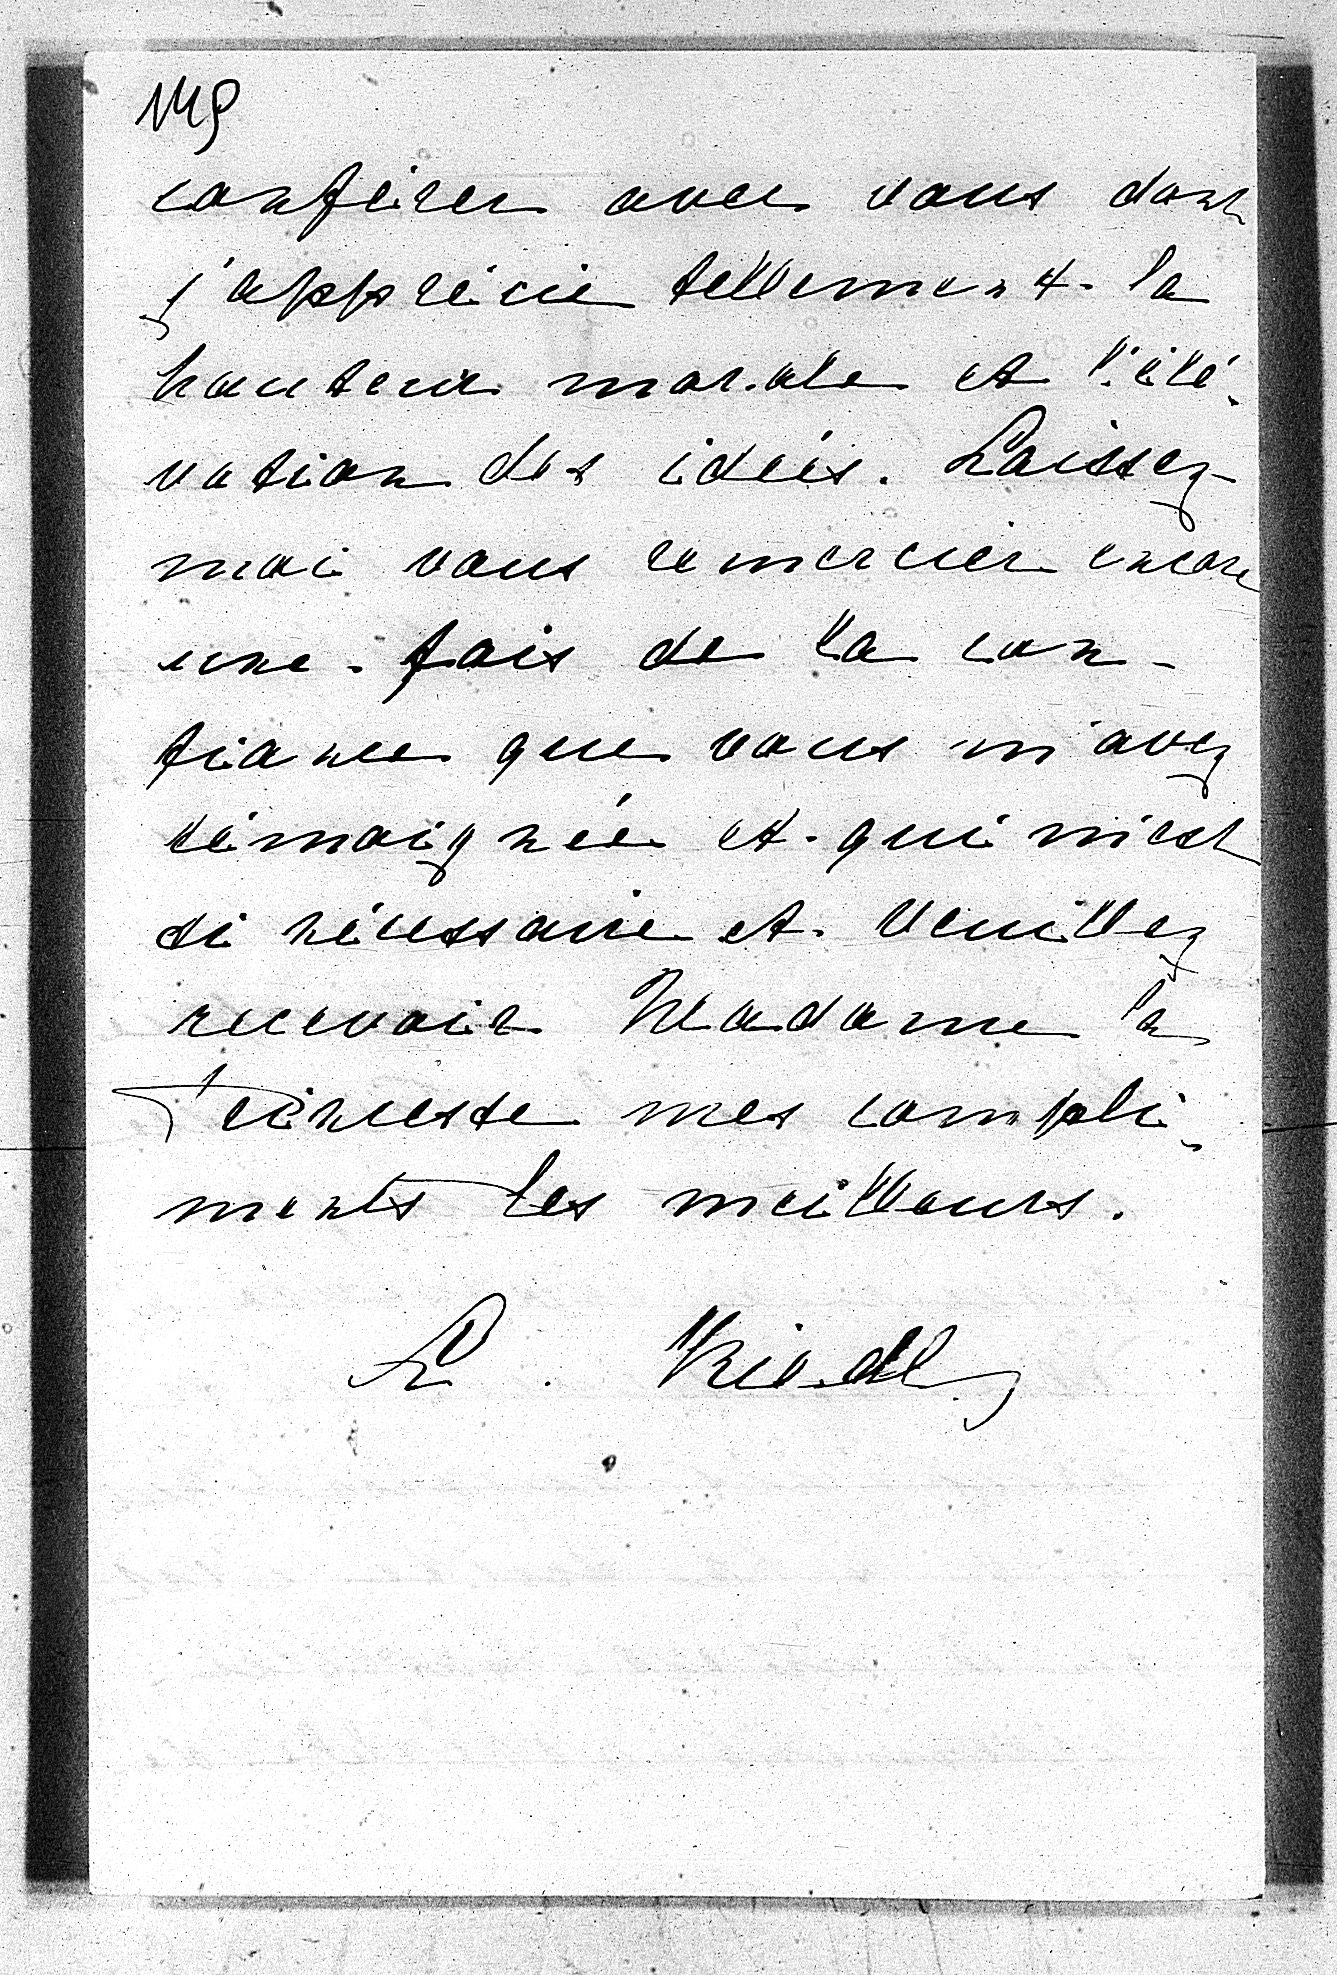 149
conférer avec vous dont
j'apprécie tellement la
hauteur morale et l'élé-
vation des idées. Laissez-
moi vous remercier encore
une fois de la con-
fiance que vous m'avez
témoignée et qui m'est
si nécessaire et veuillez
recevoir Madame la
Princesse mes compli-
ments les meilleurs.